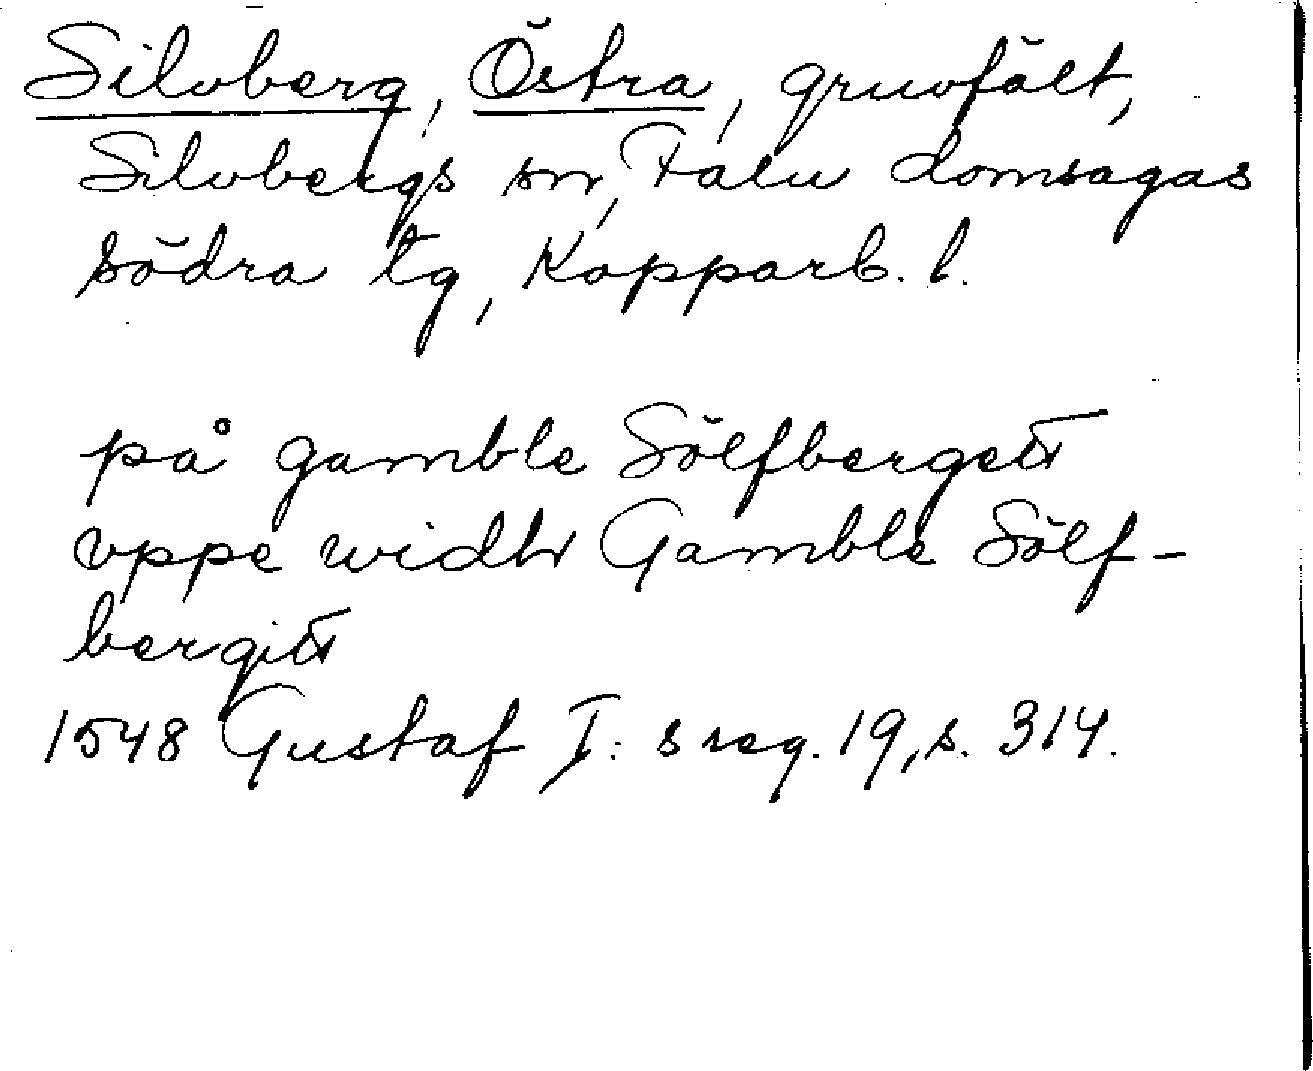 Silvberg, Östra, gruvfält,
Silvbergs sn, Falu domsagas
södra tg, Kopparb. l.
på gamble Sölfbergett
vppe widh Gamble Sölf-
bergitt
1548 Gustaf I:s reg. 19, s. 314.